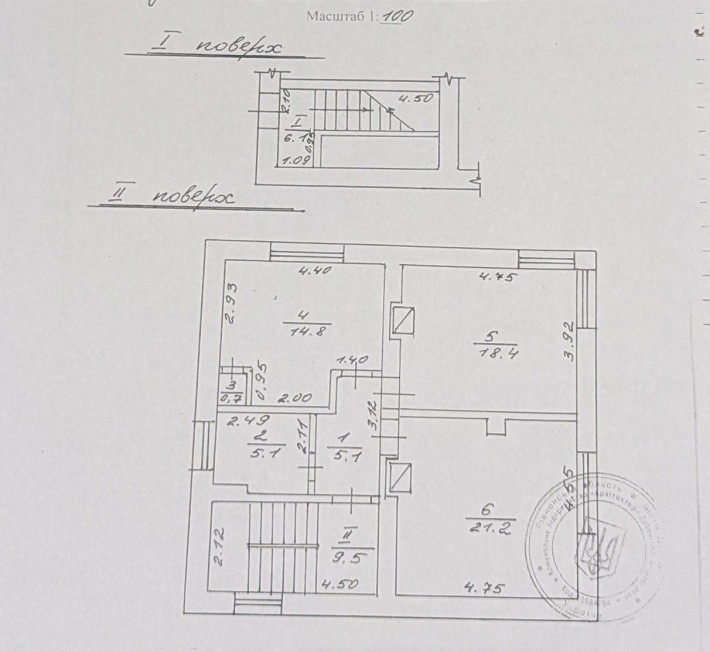 Масштаб 1:100
I поверх
2.10
4.50
I
6.1
0.95
1.09
II поверх
4.40
4.75
2.93
4
14.8
5
18.4
3.92
1.40
3
0,7
0,95
2.00
2.49
2
5.1
2.11
1
5.1
3.12
4.55
6
21.2
2.12
II
9.5
4.50
4.75